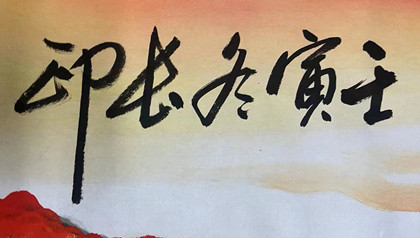 壬寅冬长印